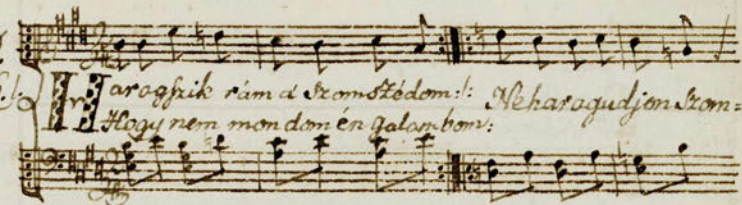 Haragszik rám a Szomszédom:|: Neharagudjon Szom=
Hogy nem mondom én galambom: